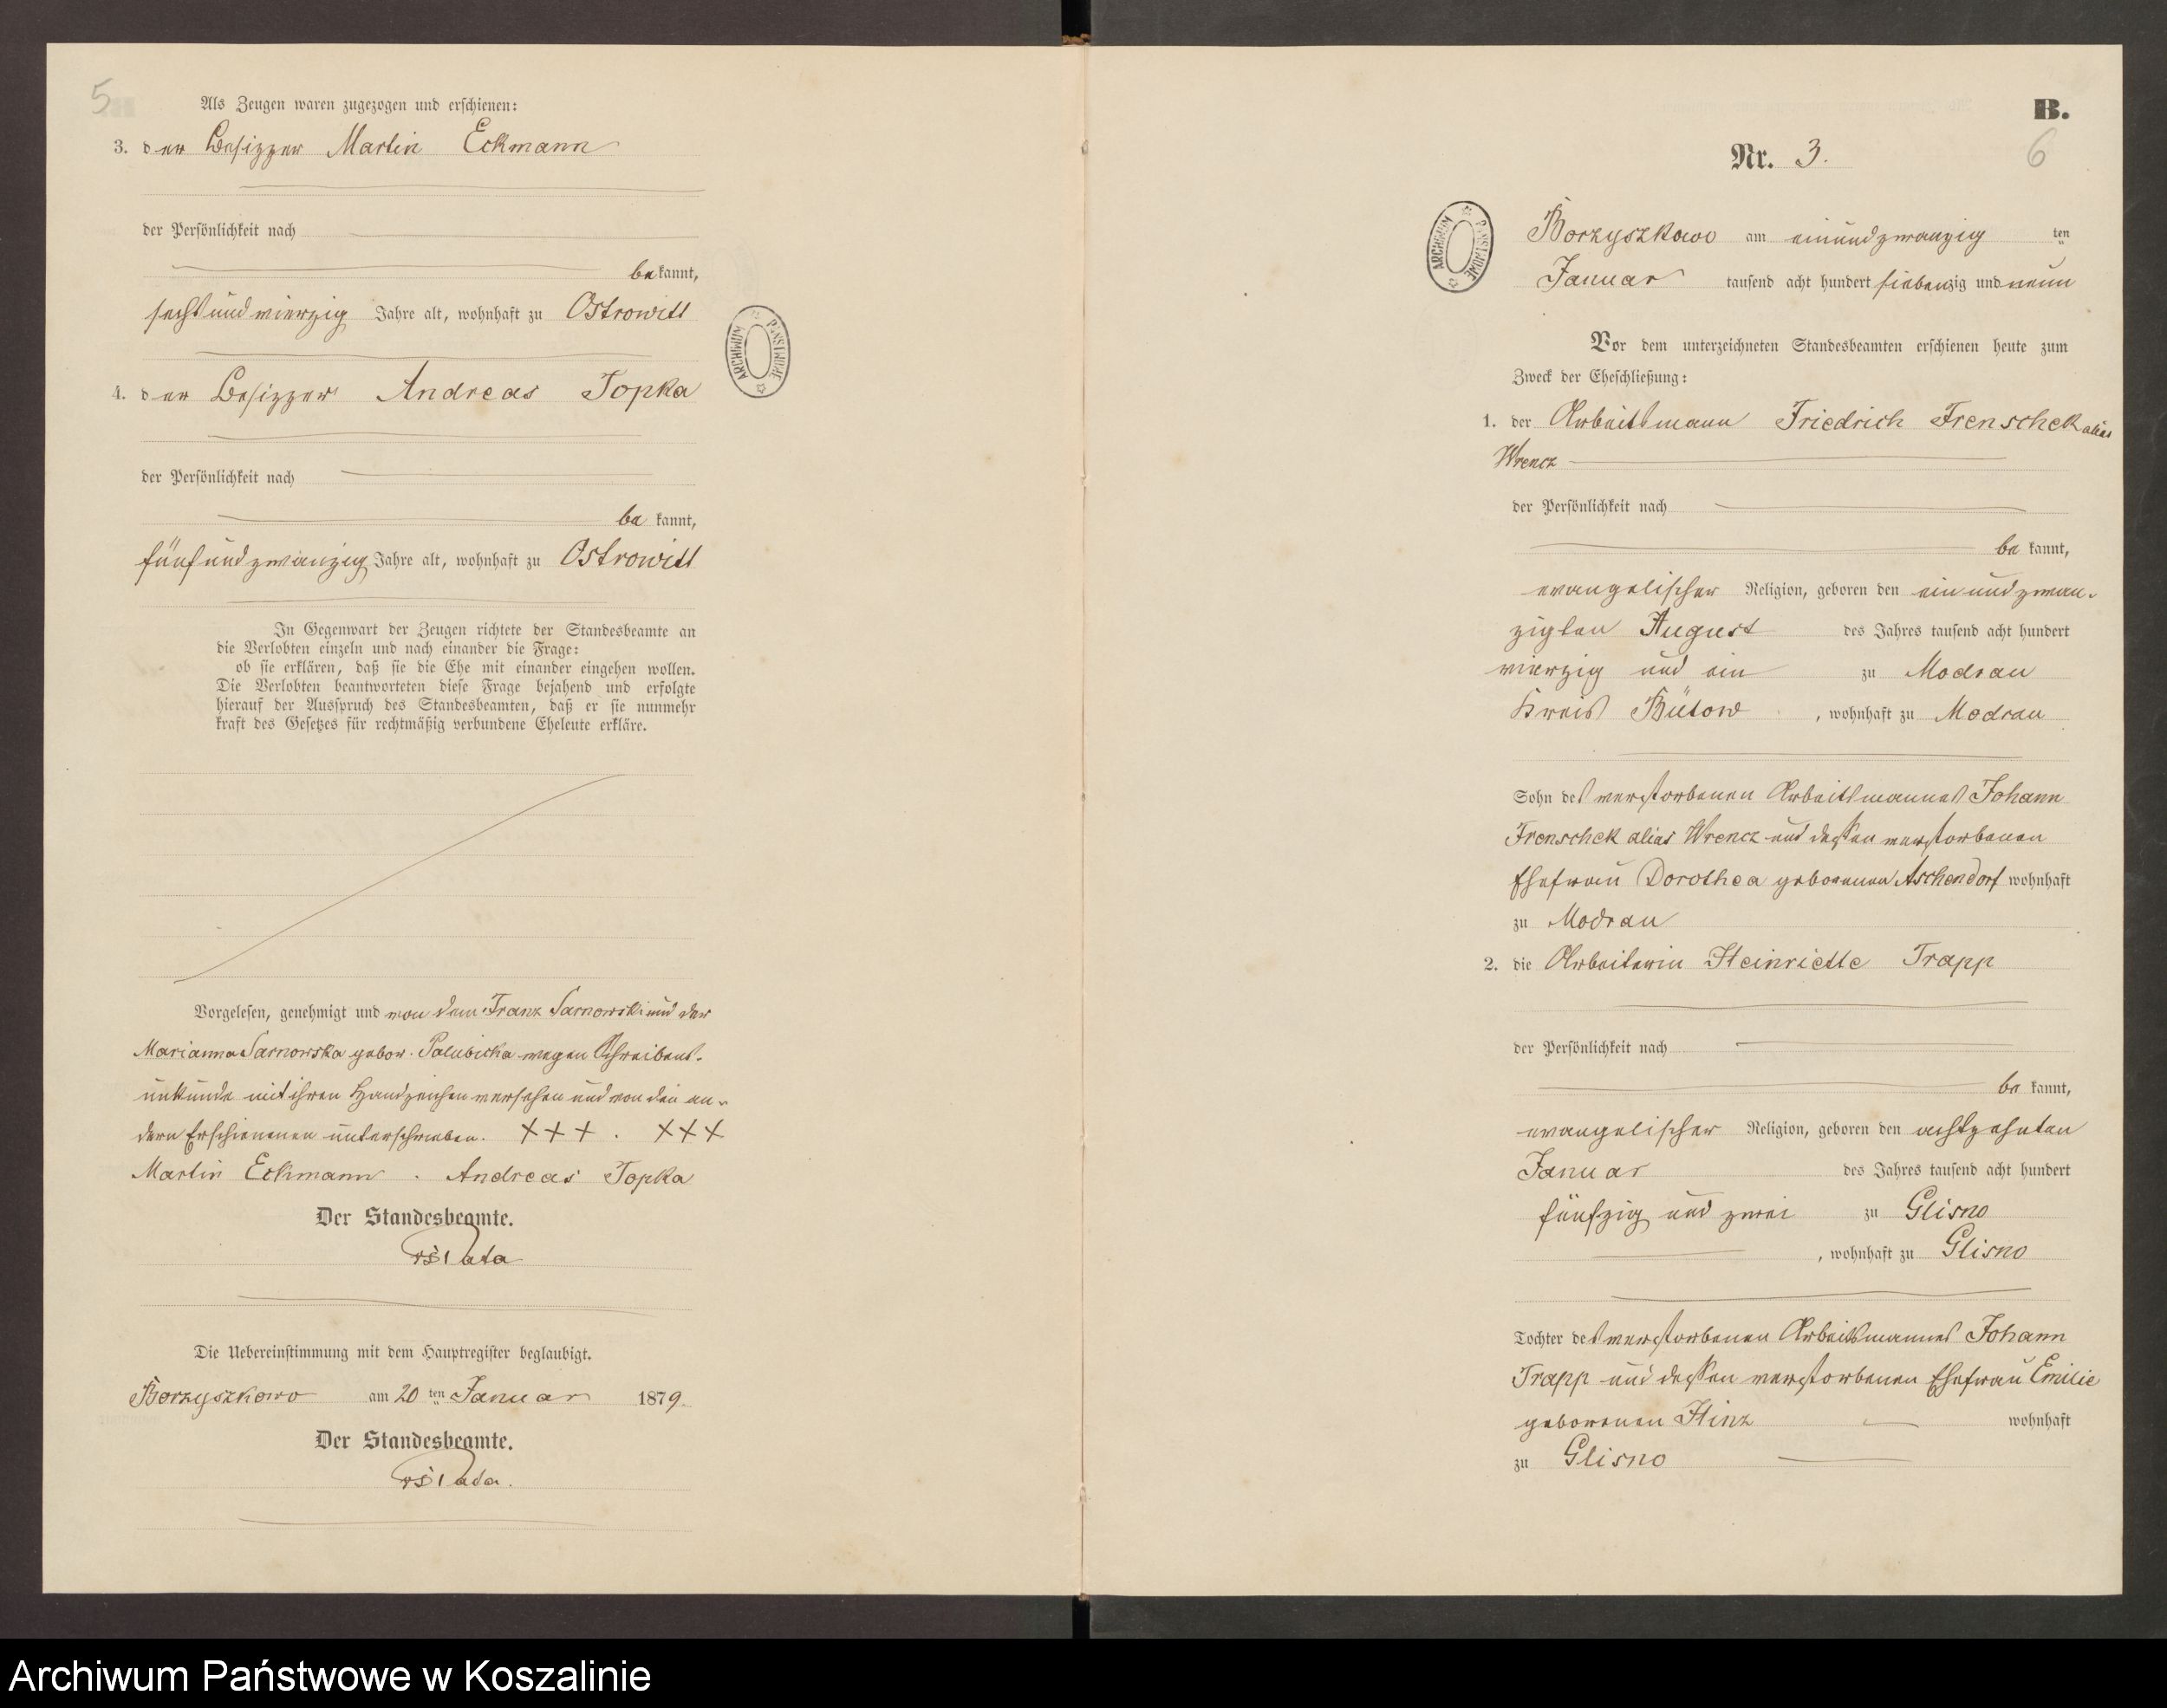 5
Als Zeugen waren zugezogen und erschienen:
3. der Besitzer Martin Eckmann
der Persönlichkeit nach
bekannt,
sechsundvierzig Jahre alt, wohnhaft zu Ostrowitt
4. der Besitzer Andreas Topka
der Persönlichkeit nach
be kannt,
fünfundzwanzig Jahre alt, wohnhaft zu Ostrowitt
In Gegenwart der Zeugen richtete der Standesbeamte an
die Verlobten einzeln und nach einander die Frage:
ob sie erklären, daß sie die Ehe mit einander eingehen wollen.
Die Verlobten beantworteten diese Frage bejahend und erfolgte
hierauf der Ausspruch des Standesbeamten, daß er sie nunmehr
kraft des Gesetzes für rechtmäßig verbundene Eheleute erkläre.
Vorgelesen, genehmigt und von dem Franz Sarnowski und der
Marianna Sarnowska gebor. Palubicka wegen Schreibens-
unkunde mit ihren Handzeichen versehen und von den an-
dern Erschienenen unterschrieben. +++ . +++
Martin Eckmann . Andreas Topka
Der Standesbeamte.
Die Uebereinstimmung mit dem Hauptregister beglaubigt.
Borzyszkowo am 20 ten Januar 1879.
Der Standesbeamte.
ARCHIWUM PAŃSTWOWE
B.
6
Nr. 3.
ARCHIWUM PAŃSTWOWE
Borzyszkowo am einundzwanzig ten
Januar tausend acht hundert siebenzig und neun
Vor dem unterzeichneten Standesbeamten erschienen heute zum
Zweck der Eheschließung:
1. der Arbeitsmann Friedrich Frenschek alias
Wrencz
der Persönlichkeit nach
be kannt,
evangelischer Religion, geboren den einundzwan-
zigten August des Jahres tausend acht hundert
vierzig und ein zu Modrau
Kreis Bütow , wohnhaft zu Modrau
Sohn des verstorbenen Arbeitsmannes Johann
Frenschek alias Wrencz und dessen verstorbenen
Ehefrau Dorothea geborenen Aschendorf wohnhaft
zu Modrau
2. die Arbeiterin Heinriette Trapp
der Persönlichkeit nach
be kannt,
evangelischer Religion, geboren den achtzehnten
Januar des Jahres tausend acht hundert
fünfzig und zwei zu Glisno
, wohnhaft zu Glisno
Tochter des verstorbenen Arbeitsmannes Johann
Trapp und dessen verstorbenen Ehefrau Emilie
geborenen Hinz wohnhaft
zu Glisno
Archiwum Państwowe w Koszalinie